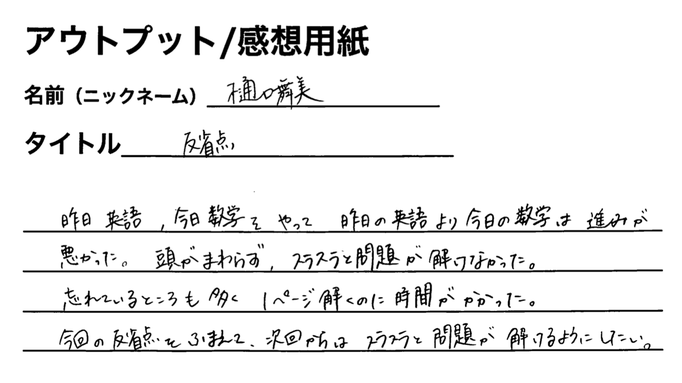 アウトプット/感想用紙
名前（ニックネーム） 樋口舞美
タイトル 反省点
昨日 英語 , 今日 数学を やって 昨日の英語より今日の数学は 進みが
悪かった。 頭がまわらず, スラスラと問題が 解けなかった。
忘れているところも 多く 1ページ解くのに 時間が かかった。
今回の反省点を ふまえて、次回からは スラスラと 問題が 解けるようにしたい。